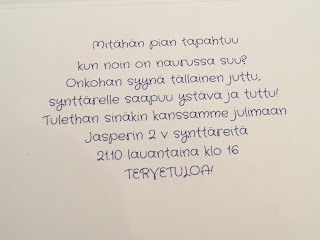 Mitähän pian tapahtuu
kun noin on naurussa suu?
Onkohan syynä tällainen juttu,
synttärelle saapuu ystävä ja tuttu!
Tulethan sinäkin kanssamme julimaan
Jasperin 2 v synttäreitä
21.10 lauantaina klo 16
TERVETULOA!